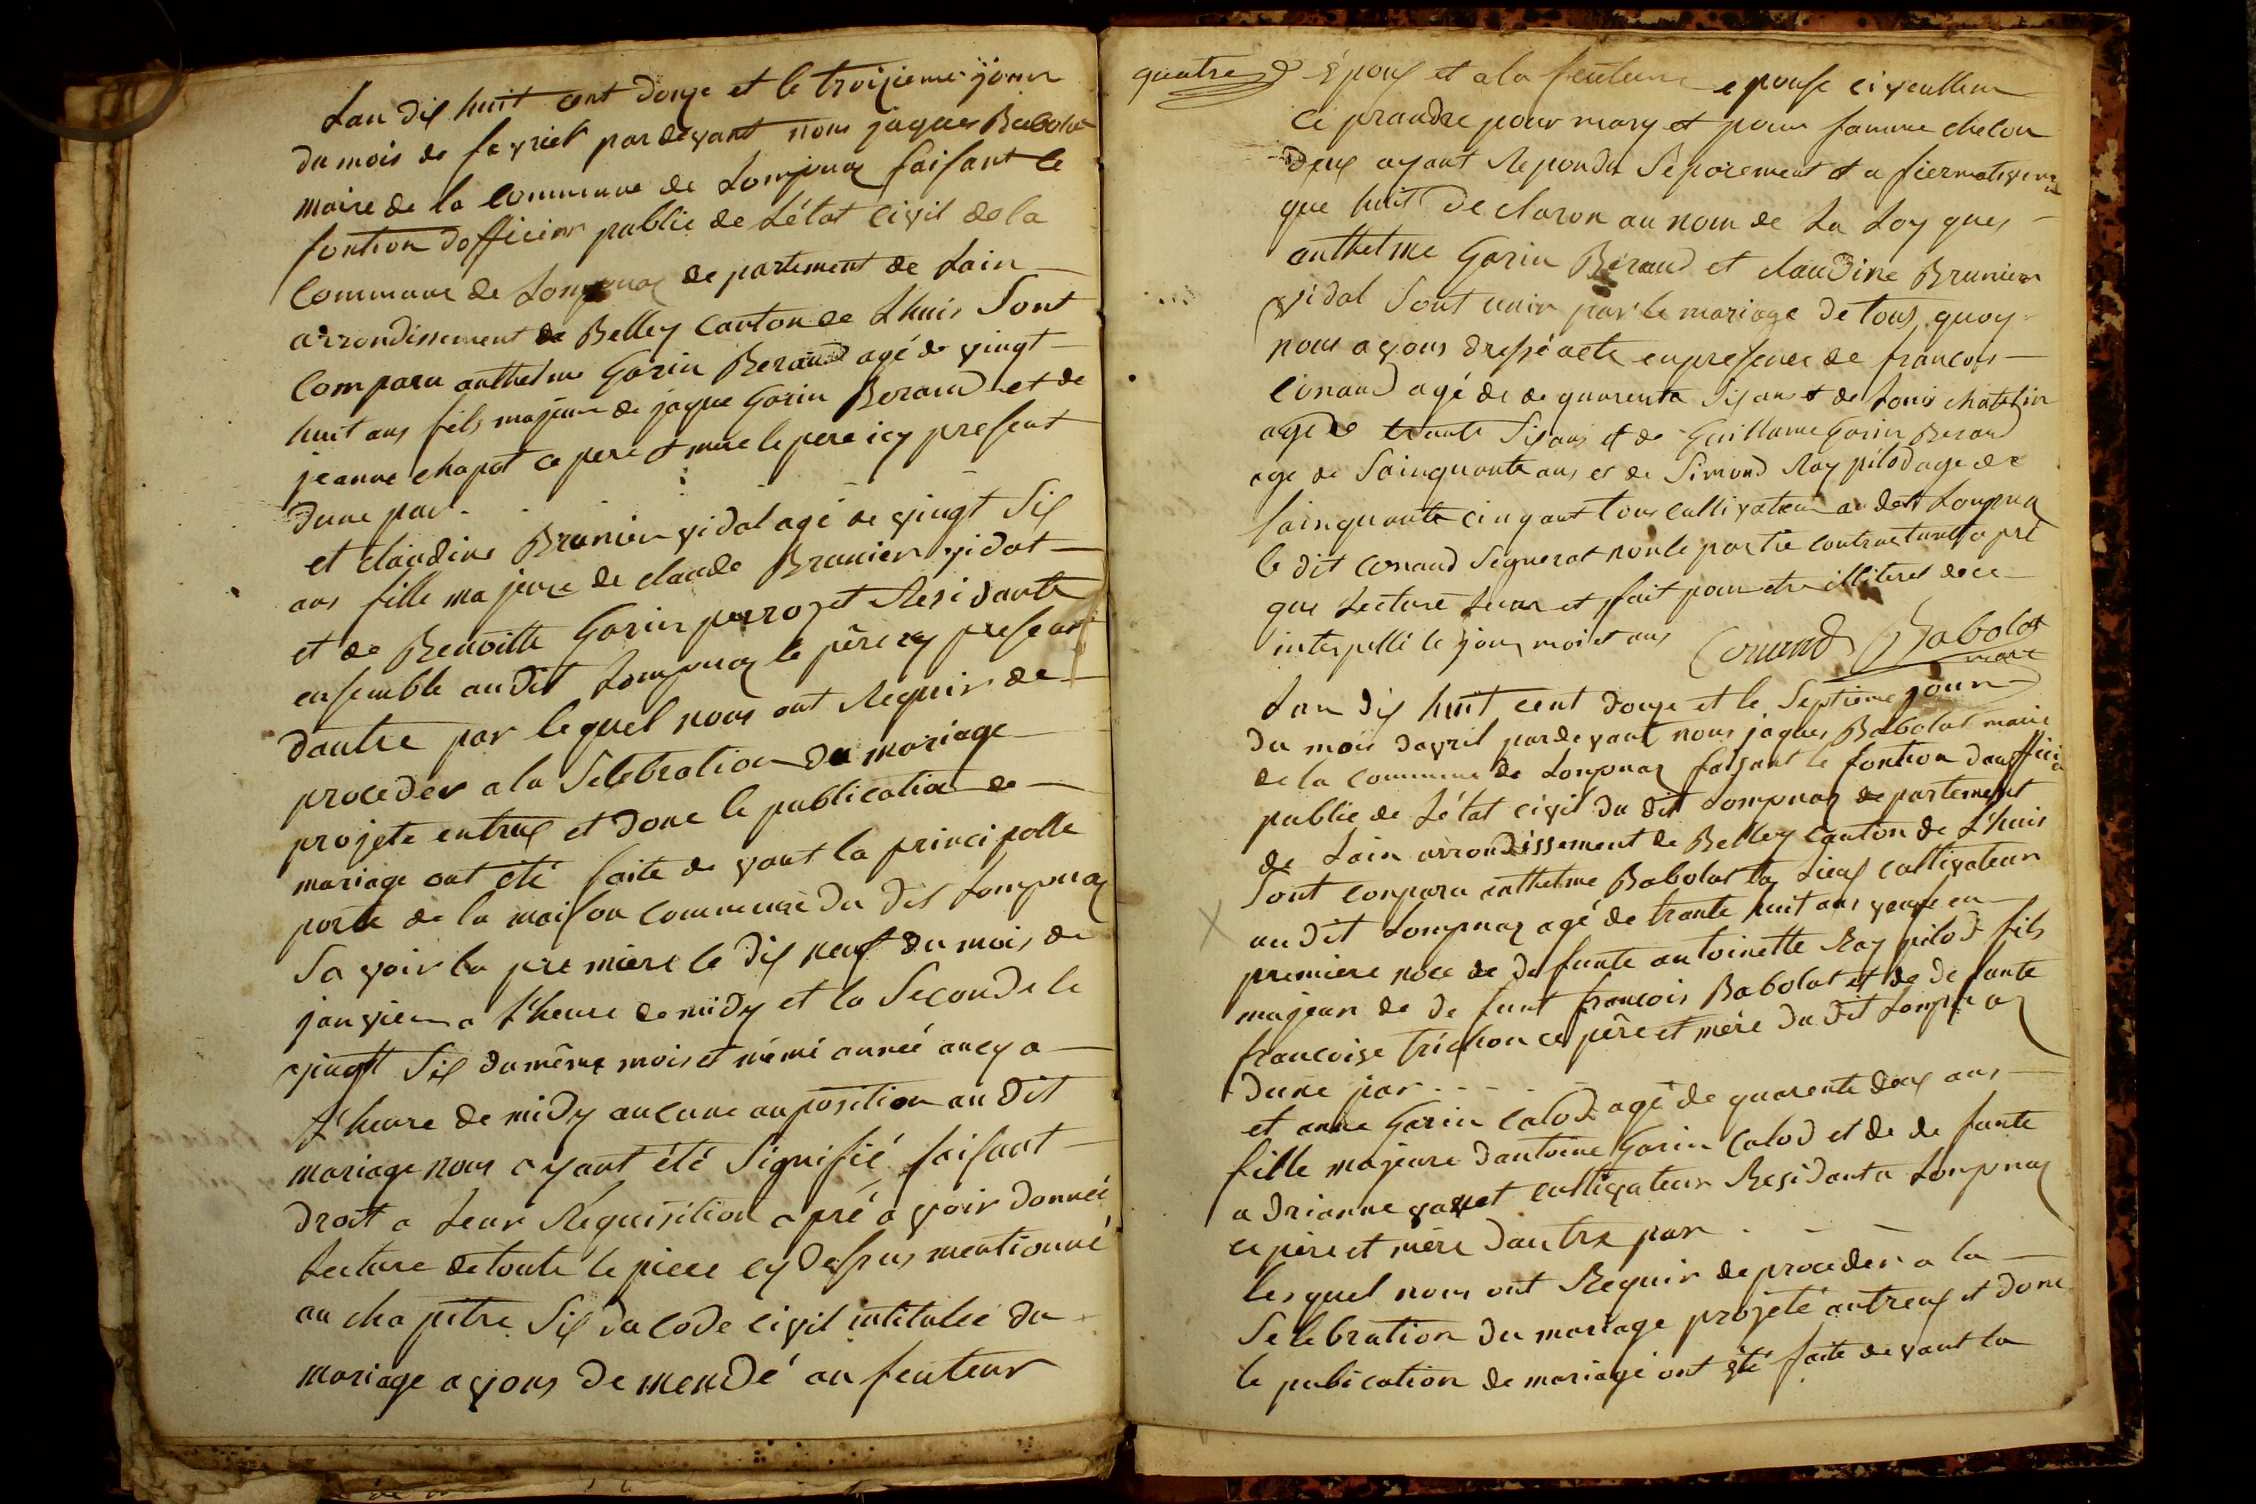 Lan dix huit cent douze et le troizieme jour
du mois de fevrier pardevant nous jaques Babolat
maire de la commune de Lompnaz faisant le
fontion dofficier public de Létat civil de la
Commune de Lompnaz departement de Lain
arrondissement de Belley canton de Lhuis Sont
comparu anthelme Gorin Beraud agé de vingt
huit ans fils majeur de jaque Gorin Beraud et de
jeanne chapot ce pere et mere le pere icy present
dune par
et claudine Brunier vidal agé de vingt Six
ans fille majeure de claude Brunier vidal
et de Benoitte Gorin perrozet Residante
ensemble au dit Lompnaz le père icy present
dautre par lequel nous ont Requir de
proceder a la Selebration du mariage
projete entreux et donc le publication de
mariage ont été faite devant la principalle
porte de la maison commune du dit Lompnaz
Savoir la premiere le dix neuf du mois de
janvier a Lheure de midy et la Seconde le
vingtt Six du même mois et même année aucy a
Lheure de midy aucune auposition au dit
mariage nous ayant été Signifié faisant
droit a Leur Réquisition apré avoir donnée
Lecture de toute le piece cy dessus mentionné
au chapitre Six du code civil intitulée du
mariage avons demendé au feuteur
quatre
Époux et a la feuteure epouse ci veullent
ce prandre pour mary et pour famme checon
deux ayant Repondu Séparement et afiermativem
que huit declaron au nom de La Loy ques
anthelme Gorin Beraud et claudine Brunier
vidal Sont unir par le mariage de tous quoy
nous avons dressé acte en presence de francois
Conand agé de de quarenta Six ans et de Louis chatelin
agé de trante Six ans et de Guillaume Gorin Beraud
age de Sainquante ans et de Simond Ray pilod age de
Sainquante cinq ant tous cultivateur au dit Lompnaz
le dit conand Signerat non le partie contractant apré
que Lecture Leur et fait pour etre illiteret de ce
interpellé le jour mois et ans Conand Babolat
maire
Lan dix huit cent douze et le Septieme jour
du mois davril pardevant nous jaques Babolat maire
de la commune de Lompnaz faisant le fontion dauffici
public de Létat civil du dit Lompnaz departement
de Lain arrondissement de Belley canton de Lhuis
Sont conparu anthelme Babolat cultivateur
au dit Lompnaz agé de trante huit ans veuf en
premiere noce de defunte antoinette Ray pilod fils
majeur de defunt francois Babolat et de defunte
francoise trichon ce père et mére du dit Lompnaz
dune par
et anne Gorin Calod agé de quarente deux ans
fille majeure dantoine Gorin Calod et de defunte
adrianne cultivateur Residant a Lompnaz
ce père et mère dautre par
lesquel nous ont Requir de proceder a la
Selebration du mariage projeté antreux et donc
le publication de mariage ont été faite devant la